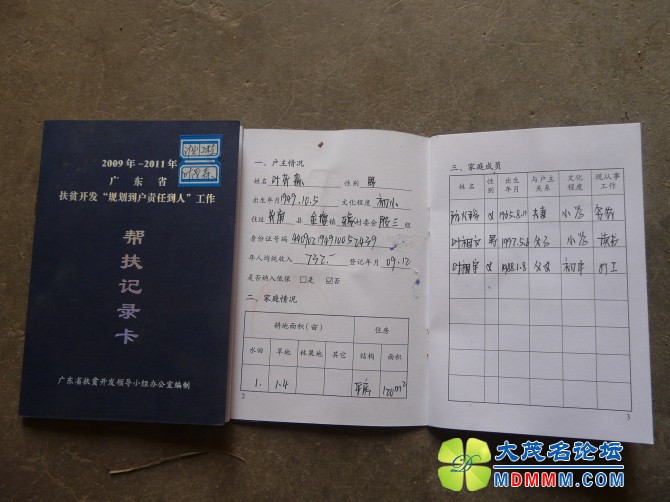 2009年-2011年
广东省
扶贫开发“规划到户责任到人”工作
帮扶记录卡
广东省扶贫开发领导小组办公室编制
一、户主情况
姓名 叶 性别 男
出生年月 1949.10.5 文化程度 初小
住址 县 镇 村委会 组
身份证号码
年人均纯收入 732.- 登记年月 09.12
是否纳入低保 □是 ☑否
二、家庭情况
耕地面积(亩) 住房
水田 旱地 林果地 其它 结构 面积
1. 1.4 平房 120m²
2
三、家庭成员
姓名 性别 出生年月 与户主关系 文化程度 现从事工作
女 1965.8.11 夫妻 小学 务农
叶 男 1997.5.6 父子 小学 读书
叶 女 1988.1.8 父女 初中 打工
3
大茂名论坛
MDMMM.COM